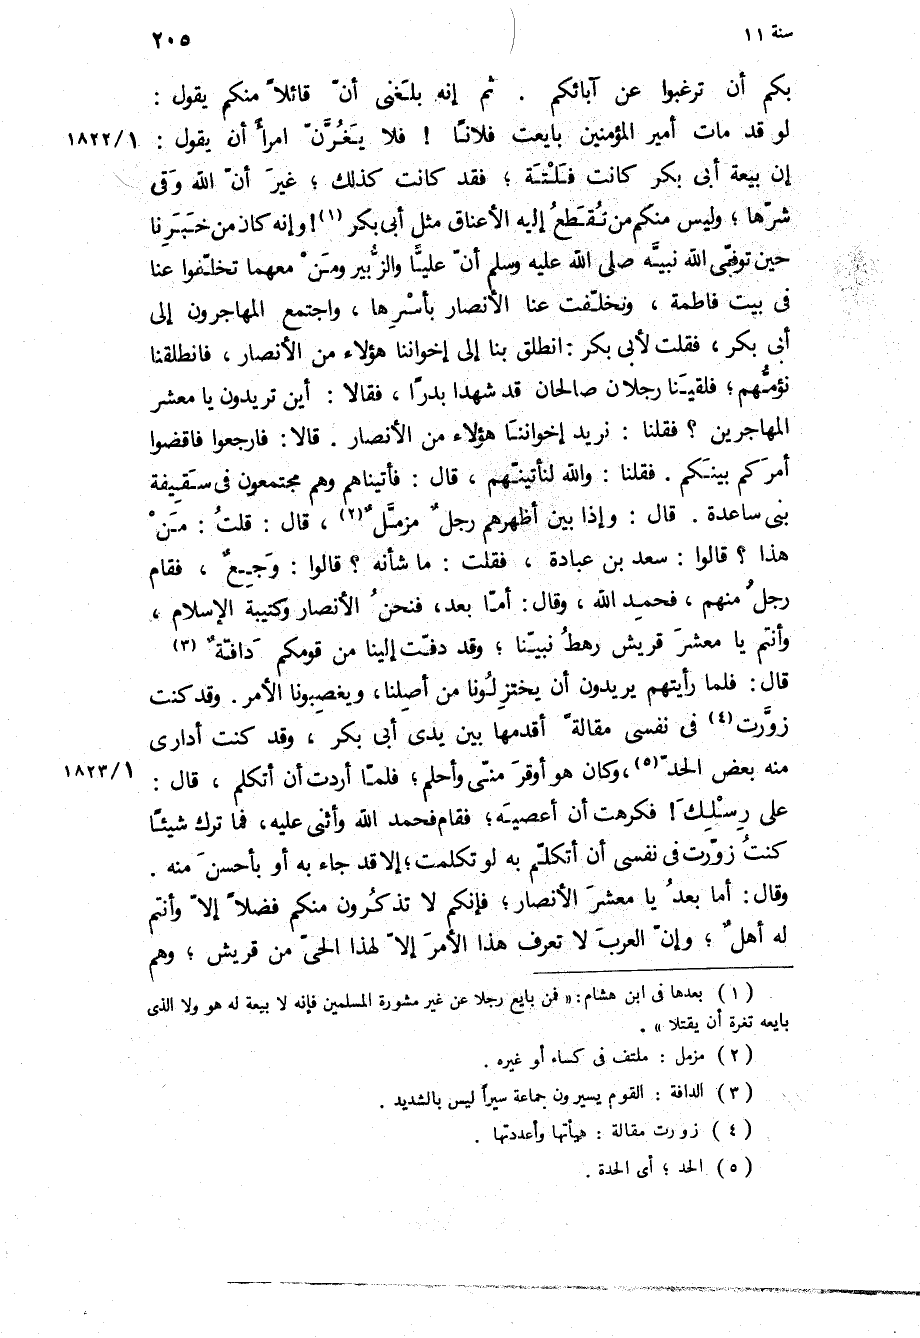 سنة ١١
٢٠٥
بكم أن ترغبوا عن آبائكم . ثم إنه بلغنى أنّ قائلاً منكم يقول :
لو قد مات أمير المؤمنين بايعت فلانًا ! فلا يَغُرَّنّ امرأً أن يقول :
١٨٢٢/١
إن بيعة أبى بكر كانت فَلْتَة ؛ فقد كانت كذلك ؛ غيرَ أنّ الله وَقى
شرّها ؛ وليس منكم من تُقطَعُ إليه الأعناق مثل أبى بكر (١)! وإنه كان من خَبَرِنا
حين توفّى الله نبيَّه صلى الله عليه وسلم أنّ عليًّا والزُّبير ومَنْ معهما تخلّفوا عنا
فى بيت فاطمة ، وتخلّفت عنا الأنصار بأسْرِها ، واجتمع المهاجرون إلى
أبى بكر ، فقلت لأبى بكر : انطلق بنا إلى إخواننا هؤلاء من الأنصار ، فانطلقنا
نؤمُّهم ؛ فلقيَنا رجلان صالحان قد شهدا بدرًا ، فقالا : أين تريدون يا معشر
المهاجرين ؟ فقلنا : نريد إخواننَا هؤلاء من الأنصار . قالا : فارجعوا فاقضوا
أمرَكم بينَكم . فقلنا : والله لنأتينّهم ، قال : فأتيناهم وهم مجتمعون فى سَقِيفة
بنى ساعدة . قال : وإذا بين أظهرهم رجلٌ مزمَّلٌ (٢) ، قال : قلتُ : مَنْ
هذا ؟ قالوا : سعد بن عبادة ، فقلت : ما شأنه ؟ قالوا : وَجِعٌ ، فقام
رجلٌ منهم ، فحمِد الله ، وقال : أمّا بعد ، فنحنُ الأنصار وكتيبة الإسلام ،
وأنتم يا معشرَ قريش رهطُ نبيّنا ؛ وقد دفّت إلينا من قومكم دَافّةٌ (٣)
قال : فلما رأيتهم يريدون أن يختزِلُونا من أصلنا ، ويغصِبونا الأمر . وقد كنت
زوَّرت (٤) فى نفسى مقالةً أقدمها بين يدى أبى بكر ، وقد كنت أدارى
منه بعض الحدّ (٥) ، وكان هو أوقرَ منّى وأحلم ؛ فلمّا أردت أن أتكلم ، قال :
١٨٢٣/١
على رِسْلِكَ ! فكرهت أن أعصيَه ؛ فقام فحمد الله وأثنى عليه ، فما ترك شيئًا
كنتُ زوّرت فى نفسى أن أتكلّم به لو تكلمت ؛ إلا قد جاء به أو بأحسنَ منه .
وقال : أما بعدُ يا معشرَ الأنصار ؛ فإنكم لا تذكُرون منكم فضلاً إلاّ وأنتم
له أهلٌ ؛ وإنّ العربَ لا تعرف هذا الأمرَ إلاّ لهذا الحىّ من قريش ؛ وهم
(١) بعدها فى ابن هشام : « فمن بايع رجلا عن غير مشورة المسلمين فإنه لا بيعة له هو ولا الذى
بايعه تغرة أن يقتلا » .
(٢) مزمل : ملتف فى كساء أو غيره .
(٣) الدافة : القوم يسيرون جماعة سيراً ليس بالشديد .
(٤) زورت مقالة : هيأتها وأعددتها .
(٥) الحد ؛ أى الحدة .